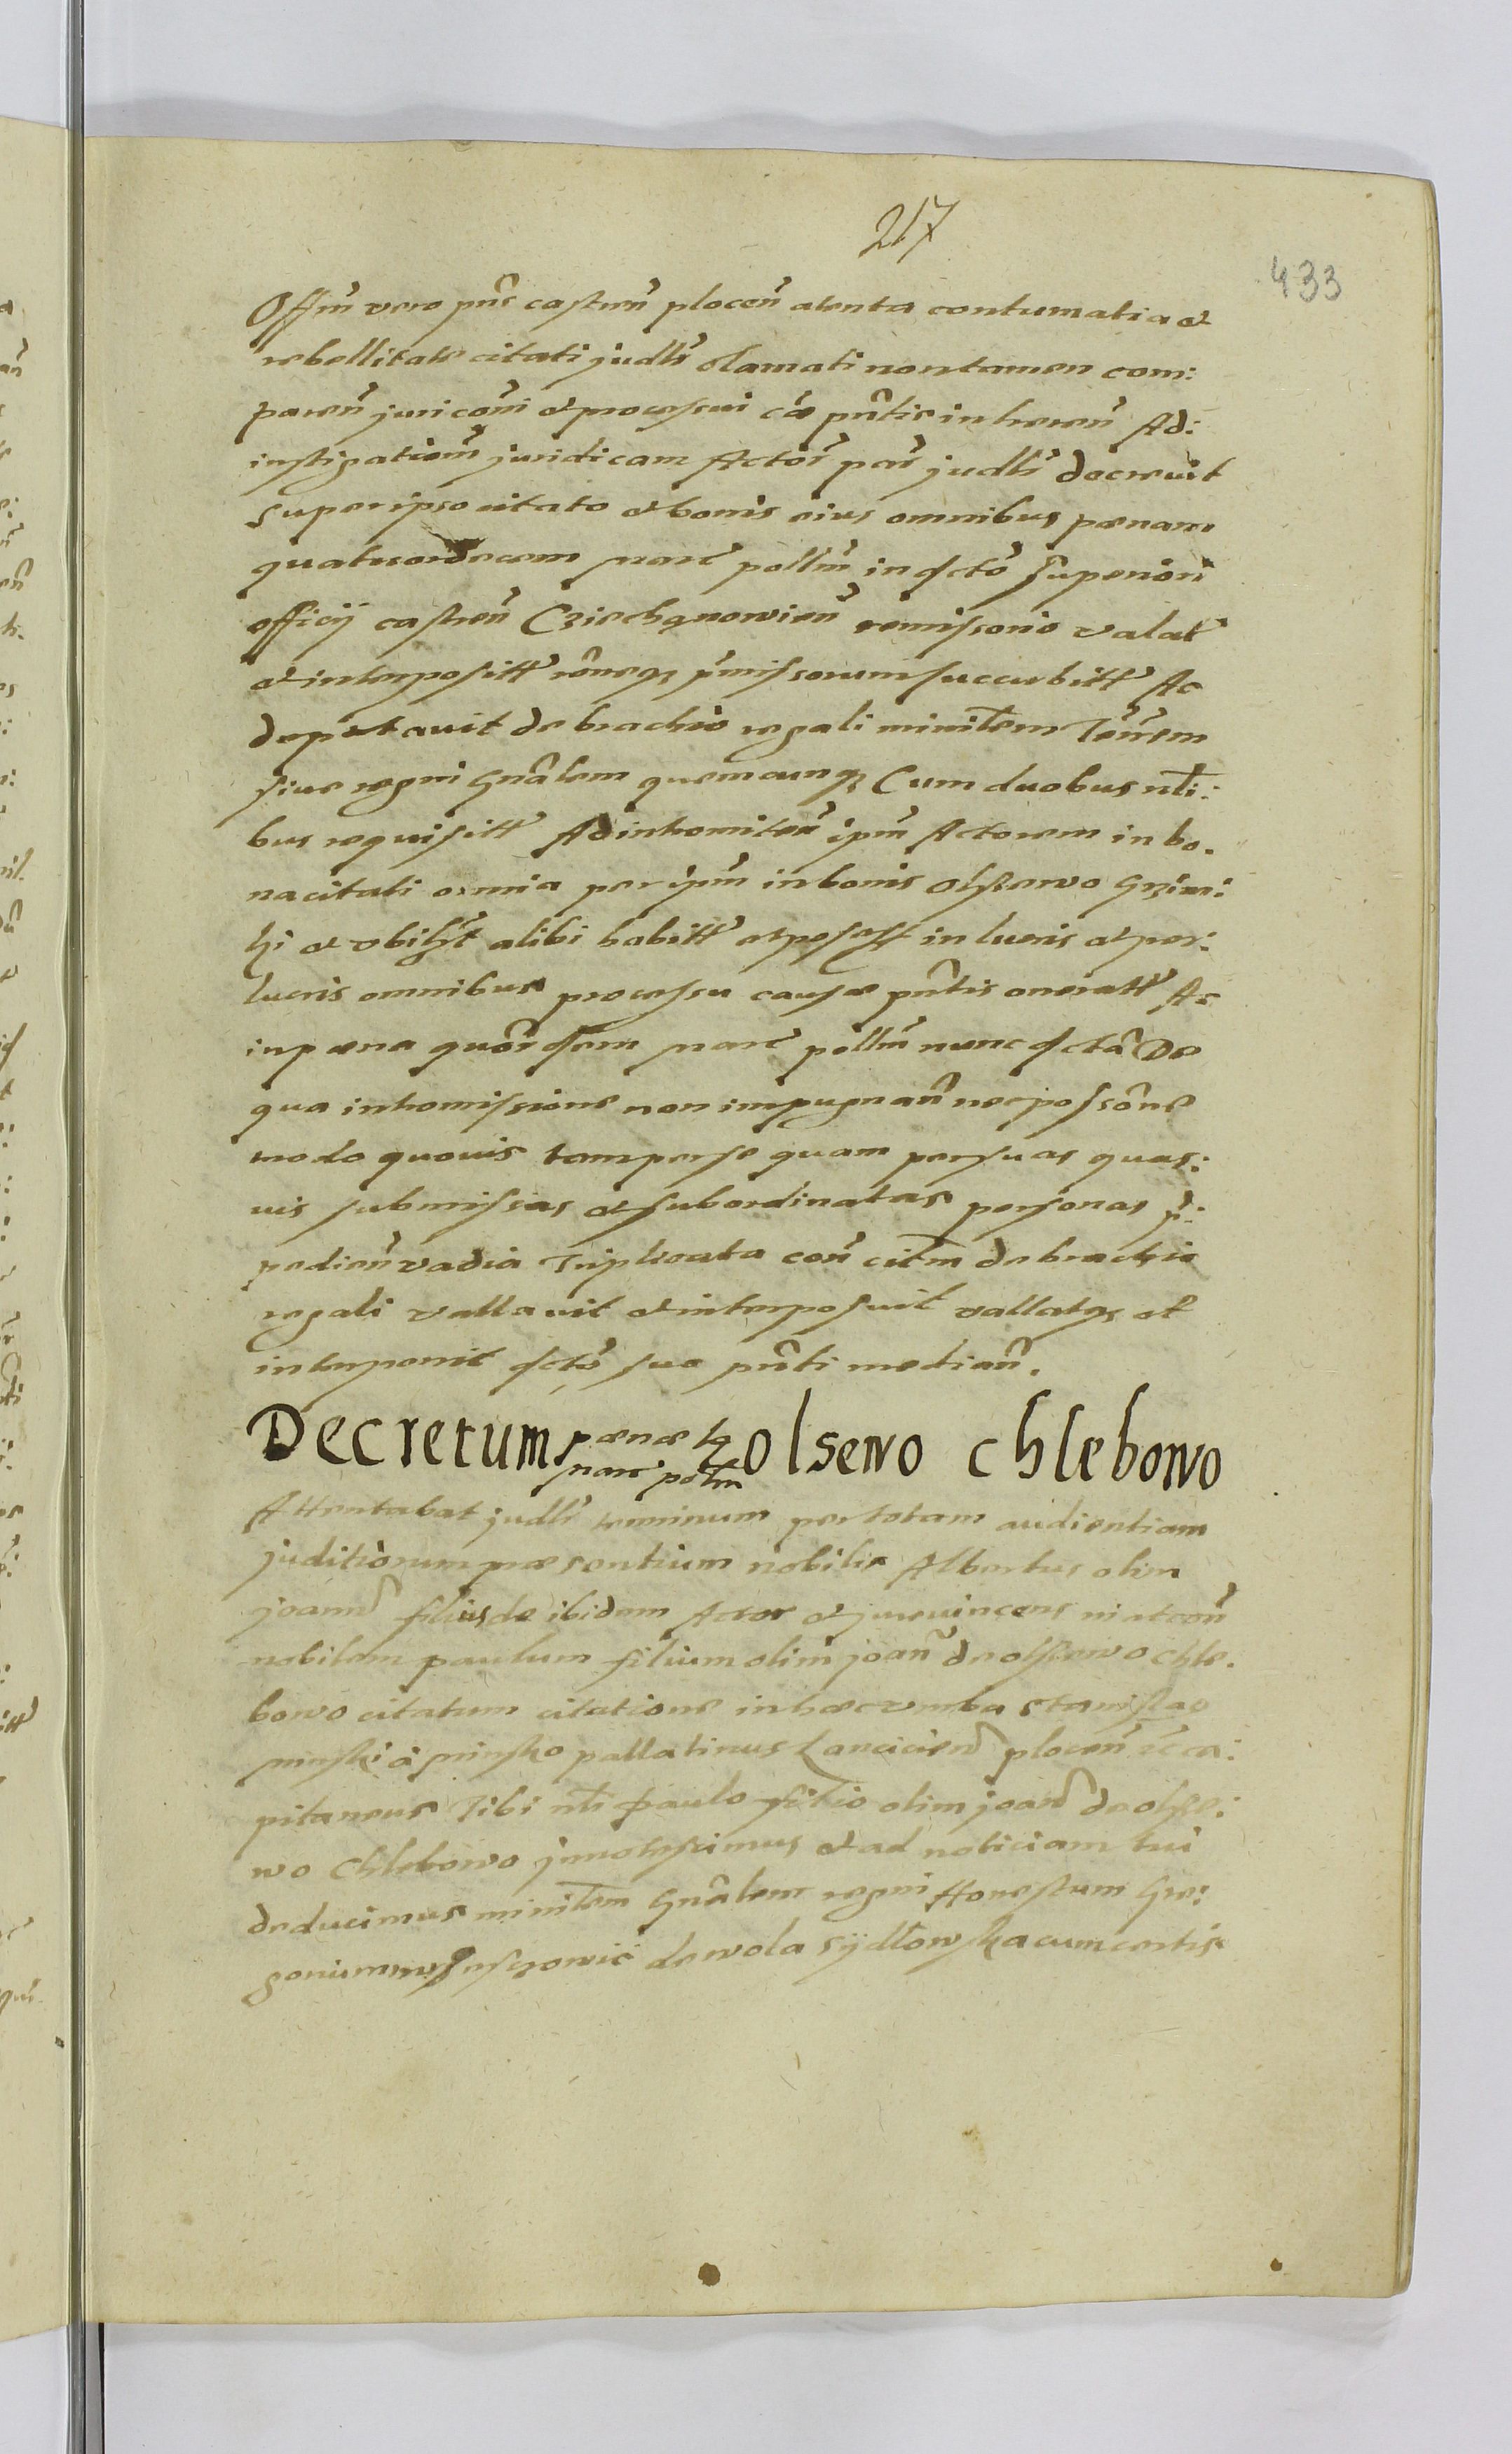 217
433
Offm̃ vero pñs castreñ ploceñ atenta contumatia et
rebellitate citati judlr̃ clamati non tamen com:
pareñ juri coĩ et processui cãe pñtis inhereñ Ad:
instigationẽ juridicam Actoris par̃ judlr̃ decreuit
super ipso citato et bonis eius omnibus pænam
quatuordecem marc̃ pollm̃ in dcto superiori
officij castreñ Cziechanowieñ remissorio valat̃
et interposit̃ rõneqz p̃missorum succubit̃ Ac
deputauit de brachio regali minilem Terr̃em
siue regni Gnãlem quemcunqz Cum duobus nli:
bus requisit̃ Ad intromiteñ ipm̃ Actorem in bo.
na citati omnia per ipm̃ in bonis Olszewo Grzimi:
ki et vbilibet alibi habit̃ et possess̃ in lucris et per:
lucris omnibus processu causæ pñtis onerat̃ Ac
in pæna quõrdem marc̃ pollm̃ nunc dcta De
qua intromissione non impugnañ nec possõne
modo quouis tam per se quam per suas quas:
uis submissas et subordinatas personas p̃:
pedieñ vadia Triplicata coñ citm̃ de brachio
regali vallauit et interposuit vallatqz et
interponit dcto suo pñti mediañ.
Decretum pænæ 14 marc̃ pollm̃ Olsewo chlebowo
Attentabat judlr̃ terminum per totam audientiam
juditiorum præsentium nobilis Albertus olim
joannĩs filius de ibidem Actor et jureuincens niat coñ
nobilem paulum filium olim joañ de olszewo chle.
bowo citatum citatione in hæc verba Stanislae
minski a minsko pallatinus Lancicieñ ploceñ zc ca:
pitaneus Tibi nli paulo filio olim joañ de olsze:
wo Chlebowo jnnotescimus et ad noticiam tui
deducimus minilem Gnãlem regni Honestum Gre:
gorium de wola sÿdlowska cum certis